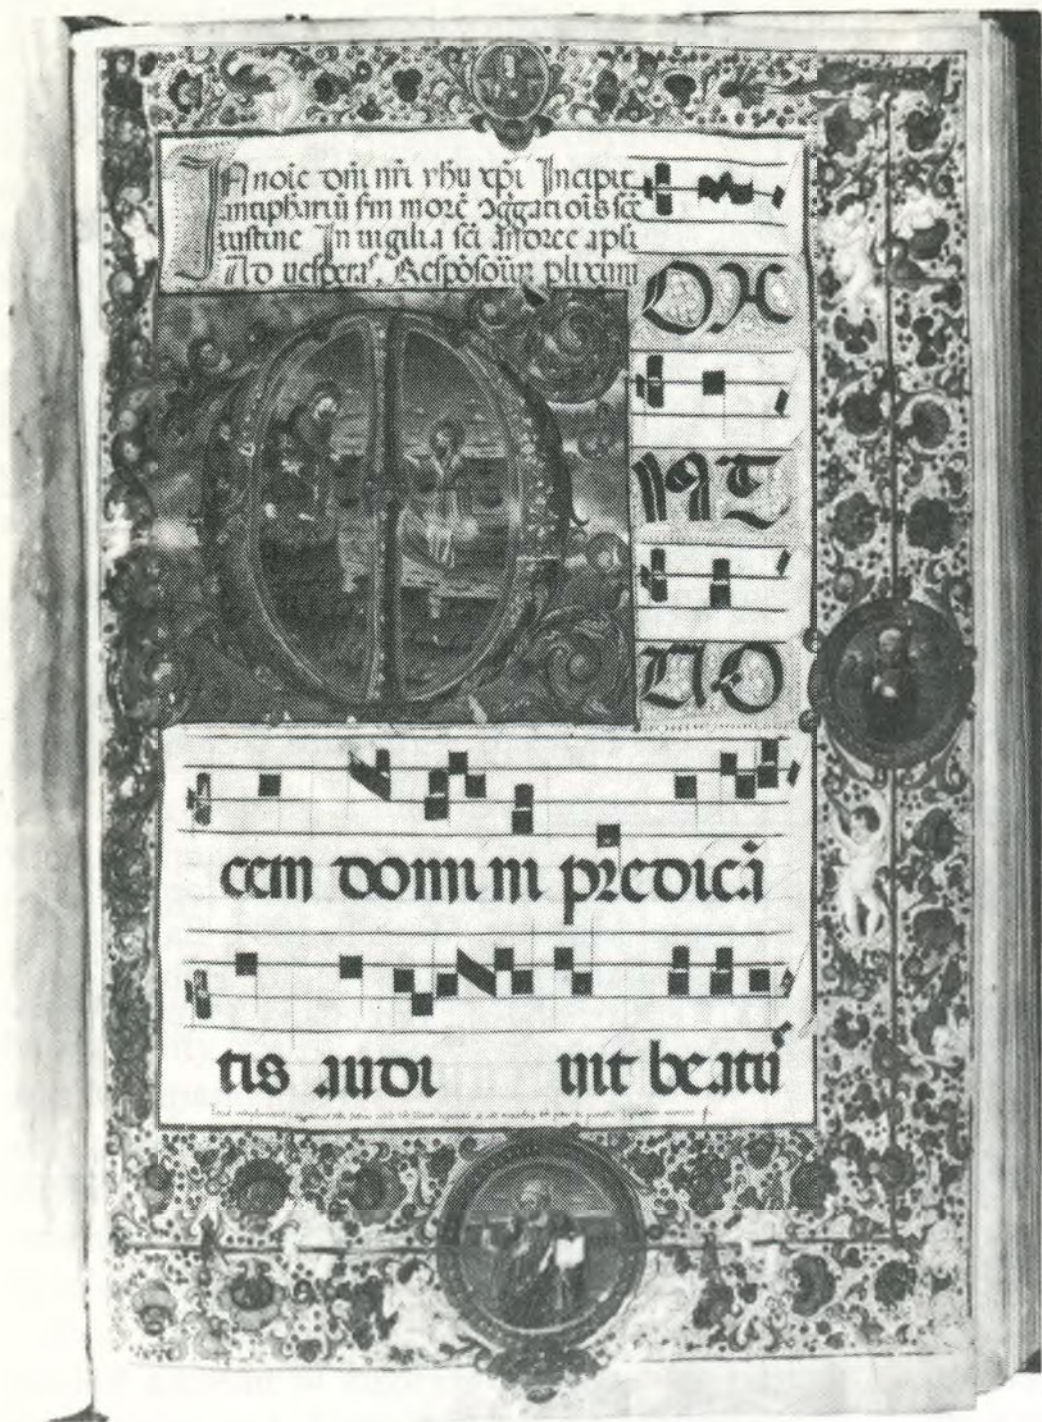 IN noie dn̄i nr̄i yhu xp̄i Incipit
antiphariū ſm morē ↄg̅gatiōis scē
iustine In uigilia sc̄i Andree apl̄i
Ad uesperas. Respōsoīum plixum
M OX
VT
VO
cem domi ni predicā
tis audi uit beatu᾽